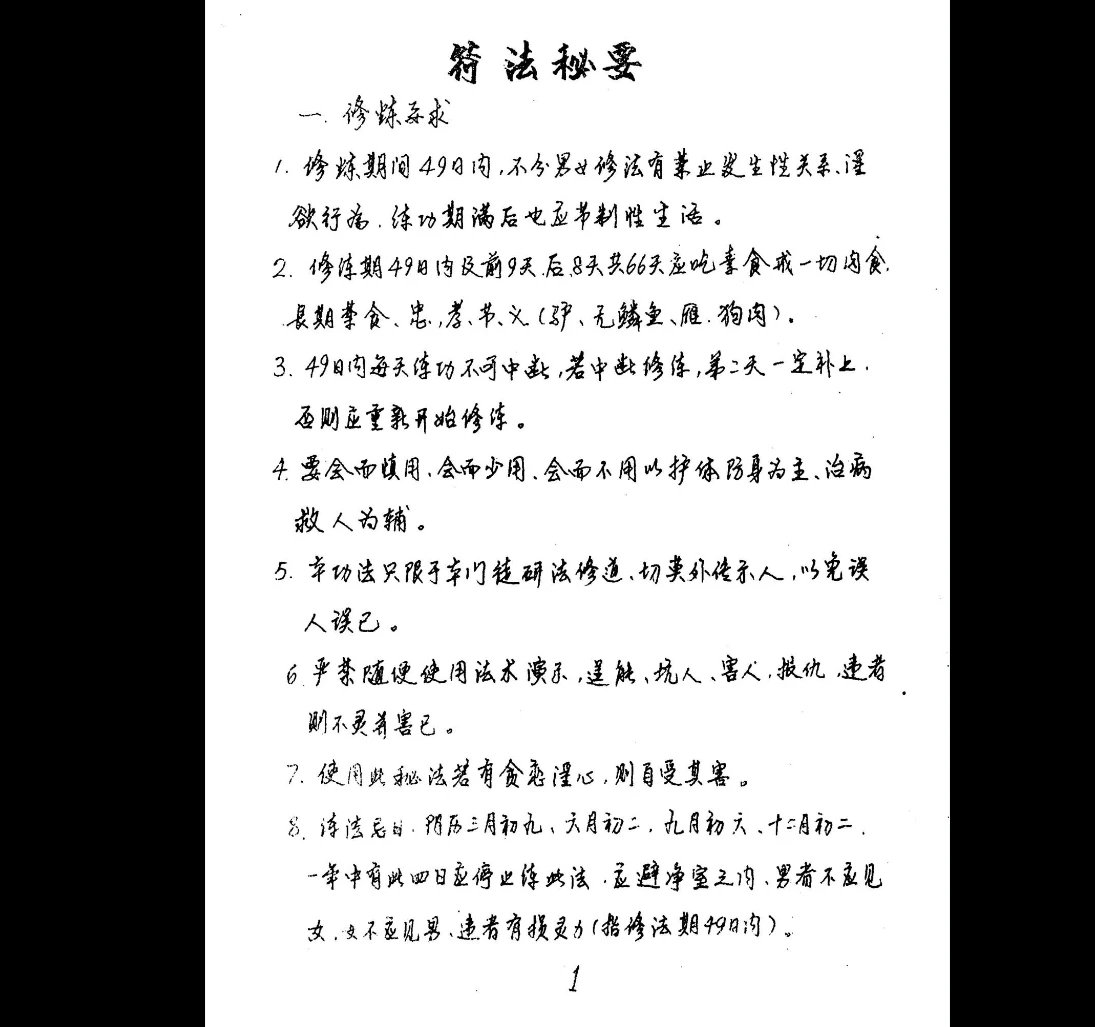 符法秘要
一. 修炼要求
1. 修炼期间49日内,不分男女修法有禁止发生性关系、淫
欲行为.练功期满后也应节制性生活。
2. 修练期49日内及前9天.后8天共66天应吃素食戒一切肉食.
長期禁食、忠,孝、节、义(驴、无鳞鱼、雁.狗肉)。
3. 49日内每天练功不可中断,若中断修练,第二天一定补上.
否则应重新开始修练。
4. 要会而慎用、会而少用、会而不用以护体防身为主、治病
救人为辅。
5. 本功法只限于本门徒研法修道、切莫外传示人,以免误
人误己。
6. 严禁随便使用法术演示,逞能、坑人、害人,报仇,违者
则不灵并害己。
7. 使用此秘法若有贪恋淫心,则自受其害。
8. 练法忌日.阴历三月初九、六月初二,九月初六、十二月初二.
一年中有此四日应停止练此法.应避净室之内、男者不应见
女.女不应见男、违者有损灵力(指修法期49日内)。
1